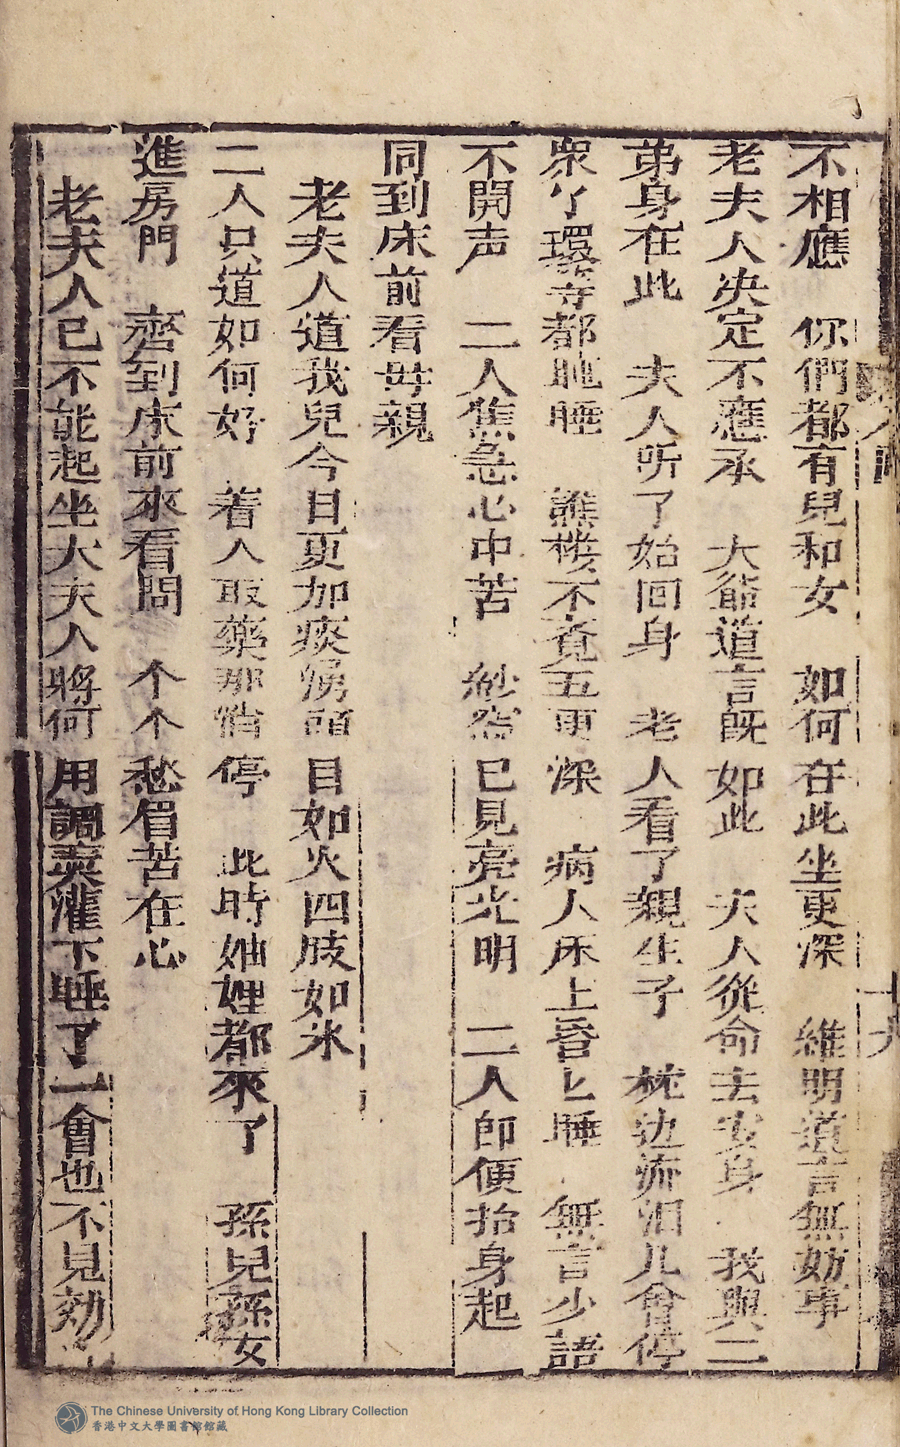 不相應　你們都有兒和女　如何在此坐更深　維明道言無妨事
老夫人决定不應承　大爺道言既如此　夫人從命去安身　我與二
弟身在此　夫人听了始回身　老人看了親生子　枕边流泪儿會停
衆丫環等都瞌睡　譙楼不覚五更深　病人床上昏上睡　無言少語
不開声　二人焦急心中苦　紗窓已見亮光明　二人即便抬身起
同到床前看母親
老夫人道我兒今日更加痰湧頭目如火四肢如氷
二人只道如何好　着人取藥那消停　此時妯娌都來了　孫兒孫女
進房門　齊到床前來看問　个个愁眉苦在心
老夫人已不能起坐大夫人將何用調羹灌下睡了一會也不見効
十九
The Chinese University of Hong Kong Library Collection
香港中文大學圖書館館藏